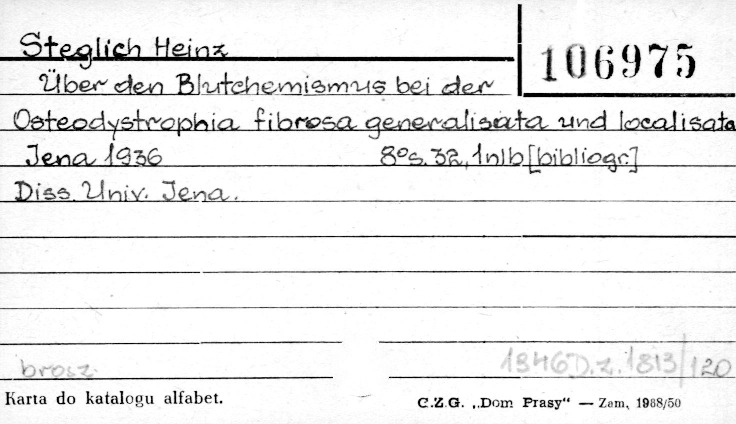 Steglich Heinz
106975
Über den Blutchemismus bei der
Osteodystrophia fibrosa generalisata und localisata
Jena 1936 8°s. 32, 1nlb [bibliogr.]
Diss. Univ. Jena.
brosz. 1946D.z.1813/120
Karta do katalogu alfabet. C.Z.G. „Dom Prasy" — Zam, 1988/50